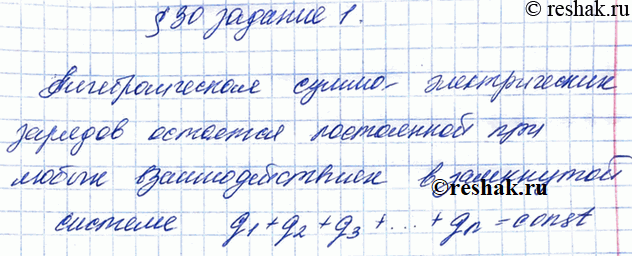 © reshak.ru
§ 30 задание 1.
Алгебраическая сумма электрических
зарядов остается постоянной при
любых взаимодействиях в замкнутой
системе q₁ + q₂ + q₃ + ... + qₙ = const
© reshak.ru